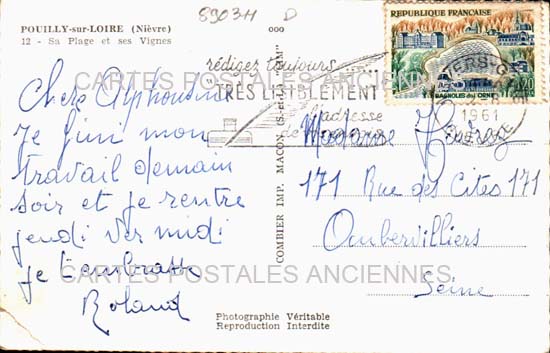 POUILLY-sur-LOIRE (Nièvre)
12 - Sa Plage et ses Vignes
8903H D
Chère Alphonsine
Je fini mon
travail demain
soir et je rentre
jeudi vers midi
je t'embrasse
Roland
COMBIER IMP. MACON (S.-et-L.) "CIM"
rédigez toujours
TRÈS LISIBLEMENT
l'adresse
REPUBLIQUE FRANÇAISE
BAGNOLES DE L'ORNE
0,20
NEVERS-GARE
1961
NIEVRE
Madame
171 Rue des Cités 171
Aubervilliers
Seine
Photographie Véritable
Reproduction Interdite
CARTES POSTALES ANCIENNES
CARTES POSTALES ANCIENNES